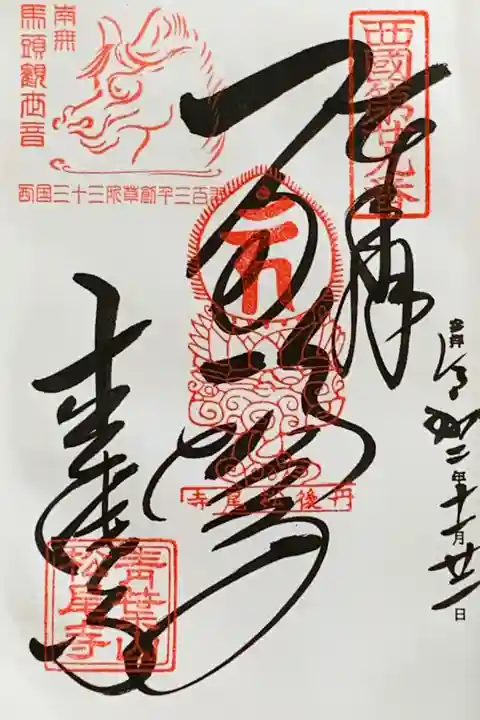 西國第廿九番
奉拝
参拝 令和二年十一月廿一日
南無
馬頭觀世音
西国三十三所草創千三百年
丹後松尾寺
松尾寺
青葉山
松尾寺